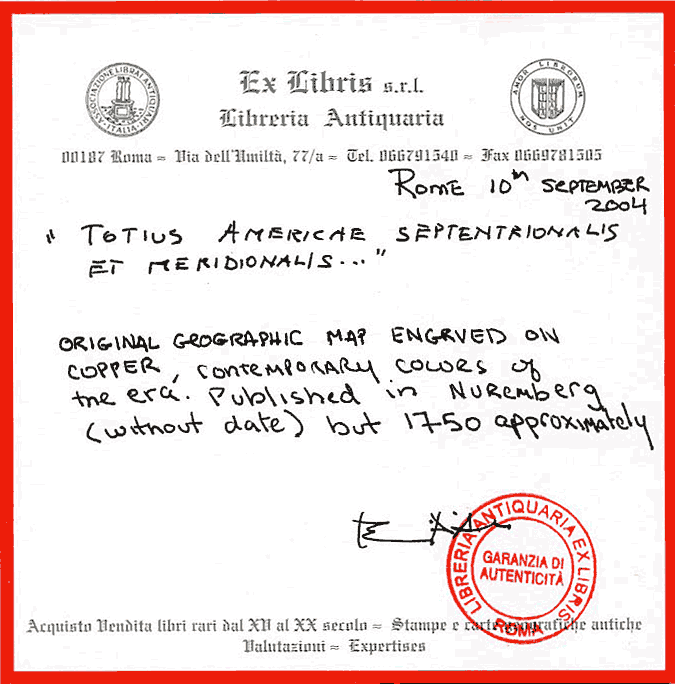 ASSOCIAZIONE LIBRAI ANTIQUARI
ITALIA
Ex Libris s.r.l.
Libreria Antiquaria
AMOR LIBRORUM
NOS UNIT
00187 Roma = Via dell'Umiltà, 77/a = Tel. 066791540 = Fax 0669781505
ROME 10th SEPTEMBER
2004
" TOTIUS AMERICAE SEPTENTRIONALIS
ET MERIDIONALIS..."
ORIGINAL GEOGRAPHIC MAP ENGRVED ON
COPPER, CONTEMPORARY COLORS OF
the era. Published in Nuremberg
(without date) but 1750 approximately
LIBRERIA ANTIQUARIA EX LIBRIS
GARANZIA DI
AUTENTICITÀ
ROMA
Acquisto Vendita libri rari dal XV al XX secolo = Stampe e carte geografiche antiche
Valutazioni = Expertises